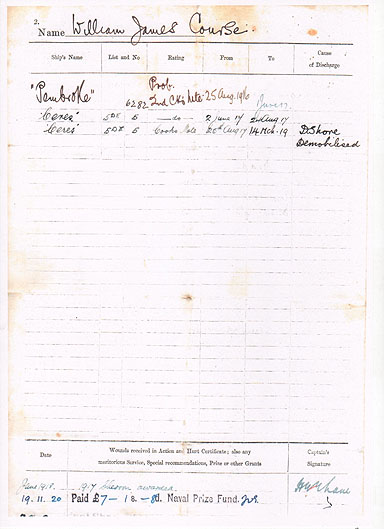 2.
Name William James Course.
Ship's Name List and No Rating From To Cause of Discharge
"Pembroke" 6282 Prob. 2nd Cks Mate 25 Aug. 1916
"Ceres" 5 — do — 2 June 17 2nd Aug 17
"Ceres" 5 Cooks Mate Aug 17 14 Mch. 19 D. Shore Demobilised
Date Wounds received in Action and Hurt Certificate; also any meritorious Service, Special recommendations, Prize or other Grants Captain's Signature
1918. 1917
19. 11. 20 Paid £7 - 18. - 8d. Naval Prize Fund.